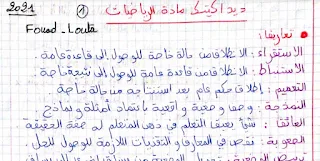 2021
① ديداكتيك مادة الرياضيات
Fouad_Louta
تعاريف:
الاستقراء: الانطلاق من حالة خاصة للوصول إلى قاعدة عامة.
الاستنباط: الانطلاق من قاعدة عامة للوصول إلى نتيجة خاصة
التعميم: إطلاق حكم عام بعد استنتاجه من حالة خاصة
النمذجة: وصف وضعية واقعية باعتماد أمثلة ونماذج
العائق: شيء يعيق التعلم في ذهن المتعلم له صفة الحقيقة
الصعوبة: نقص في المعارف والتقنيات اللازمة للوصول للحل.